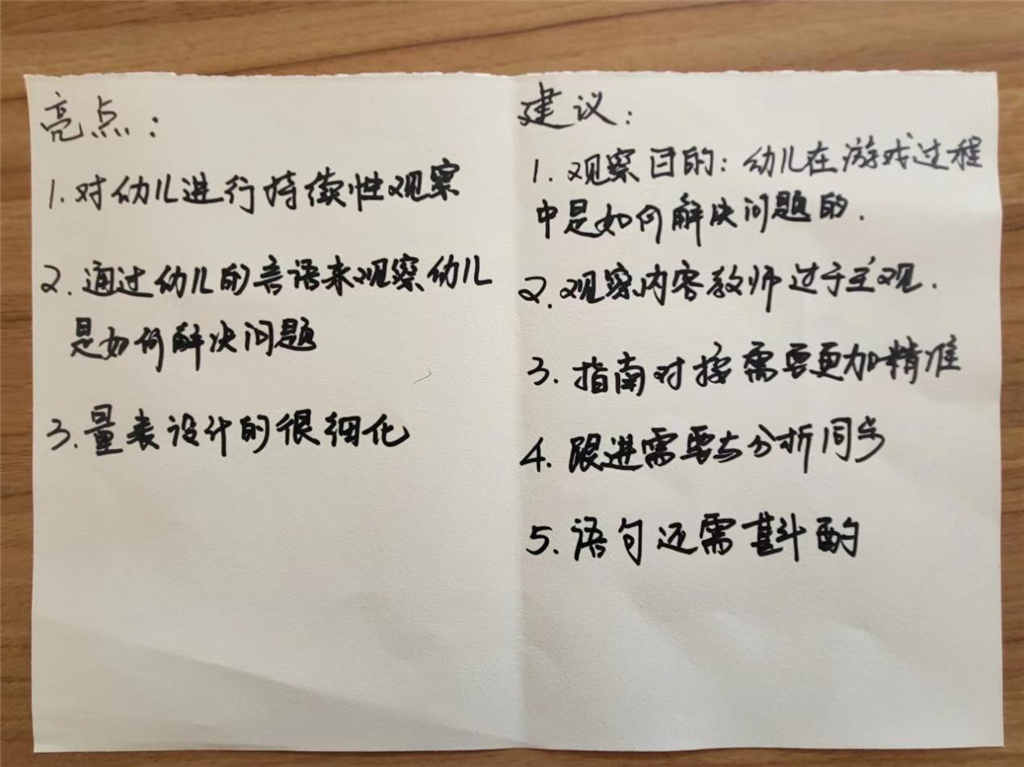 亮点：
1.对幼儿进行持续性观察
2.通过幼儿的言语来观察幼儿
是如何解决问题
3.量表设计的很细化
建议：
1.观察目的：幼儿在游戏过程
中是如何解决问题的.
2.观察内容教师过于主观.
3.指南对接需要更加精准
4.跟进需要与分析同步
5.语句还需斟酌